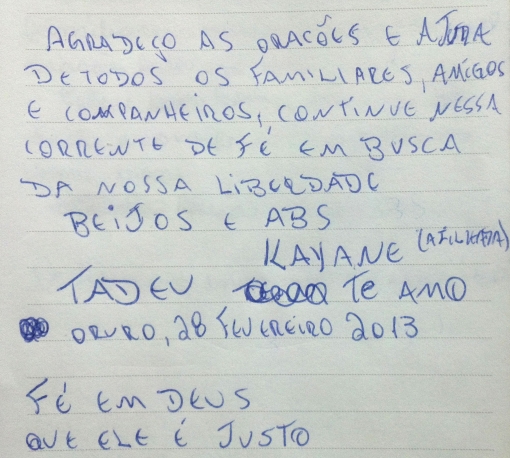 AGRADEÇO AS ORACÕES E AJUDA
DE TODOS OS FAMILIARES, AMIGOS
E COMPANHEIROS, CONTINUE NESSA
CORRENTE DE FÉ EM BUSCA
DA NOSSA LIBERDADE
BEIJOS E ABS
KAYANE (AFILHADA)
TADEU TE AMO
ORURO, 28 FEVEREIRO 2013
FÉ EM DEUS
QUE ELE É JUSTO